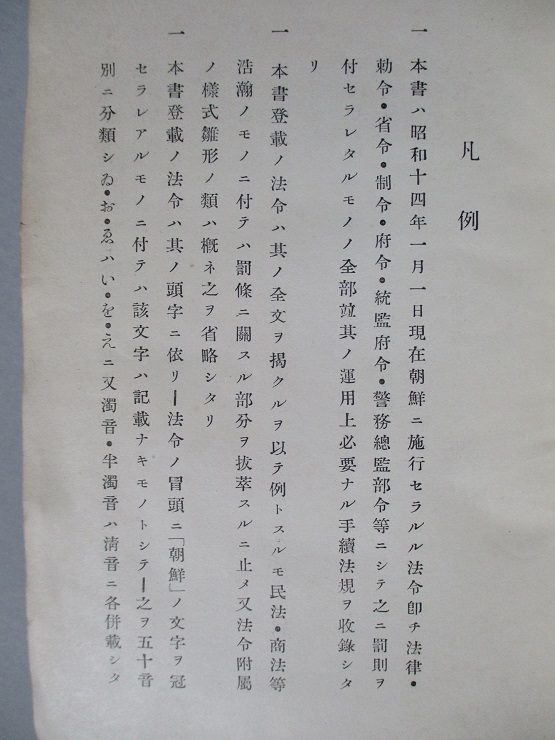 凡例
一 本書ハ昭和十四年一月一日現在朝鮮ニ施行セラルル法令卽チ法律・
勅令・省令・制令・府令・統監府令・警務總監部令等ニシテ之ニ罰則ヲ
付セラレタルモノノ全部竝其ノ運用上必要ナル手續法規ヲ收錄シタ
リ
一 本書登載ノ法令ハ其ノ全文ヲ揭クルヲ以テ例トスルモ民法・商法等
浩瀚ノモノニ付テハ罰條ニ關スル部分ヲ拔萃スルニ止メ又法令附屬
ノ樣式雛形ノ類ハ槪ネ之ヲ省略シタリ
一 本書登載ノ法令ハ其ノ頭字ニ依リ―法令ノ冒頭ニ「朝鮮」ノ文字ヲ冠
セラレアルモノニ付テハ該文字ハ記載ナキモノトシテ―之ヲ五十音
別ニ分類シゐ・お・ゑハい・を・えニ又濁音・半濁音ハ淸音ニ各併載シタ